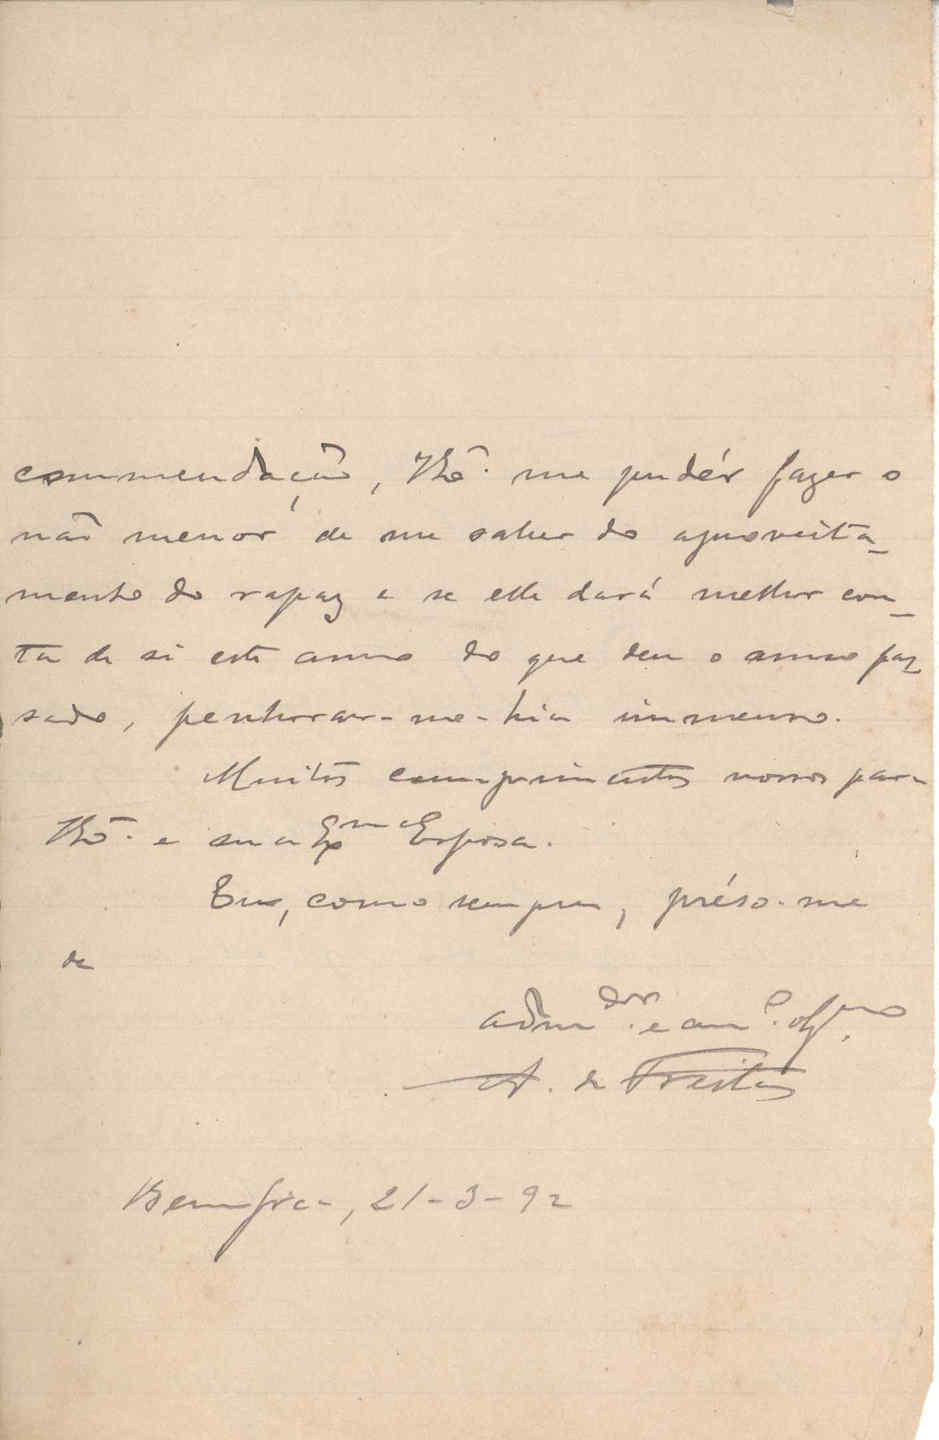 commendação, V.Exª. me pudér fazer o
não menor de me saber do aproveita-
mento do rapaz e se elle dará melhor con-
ta de si este anno do que deu o anno pas-
sado, penhorar-me-hia immenso.
Muitos comprimentos nossos para
V.Exª. e sua Exma Esposa.
Eu, como sempre, préso-me
de
adm.dor e am.o obg.mo
A. de Freitas
Bemfica, 21-3-92